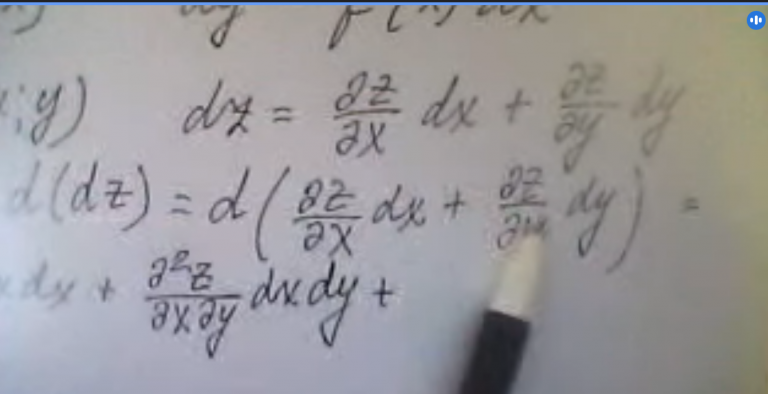 ;y) dz = ∂z/∂x dx + ∂z/∂y dy
d(dz) = d(∂z/∂x dx + ∂z/∂y dy) =
dx + ∂²z/∂x∂y dx dy +